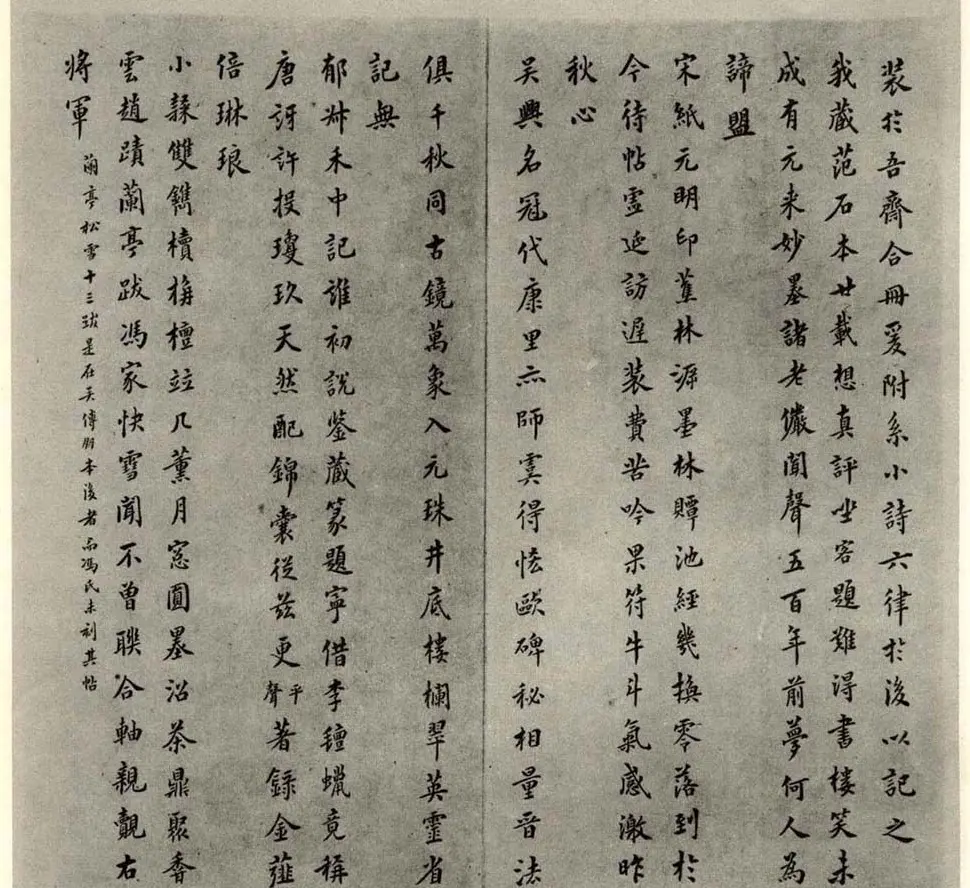 裝於吾齋合冊爰附系小詩六律於後以記之
我藏范石本廿載想真評坐客題難得書樓笑未
成有元来妙墨諸老儼聞聲五百年前夢何人為
諦盟
宋紙元明印蕉林溯墨林賺池經幾換零落到於
今待帖靈延訪遲裝費苦吟果符牛斗氣感激昨
秋心
吴興名冠代康里亦師虞得恠歐碑秘相量晋法
俱千秋同古鏡萬象入元珠井底樓欄翠英靈省
記無
郁𣏌禾中記誰初說鑒藏篆題寧借李鐘蠟竟稱
唐訝許投瓊玖天然配錦囊從兹更平聲著録金薤
倍琳琅
小隸雙鐫櫝栴檀竝几薰月窓圓墨沼茶鼎聚香
雲趙蹟蘭亭跋馮家快雪聞不曾聯合軸親覿右
將軍 蘭亭松雪十三跋是在吴傅朋本後者而馮氏未刻其帖